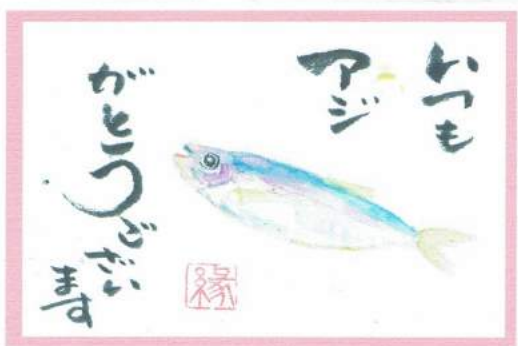 いつも
アジ
がとうござい
ます
縁